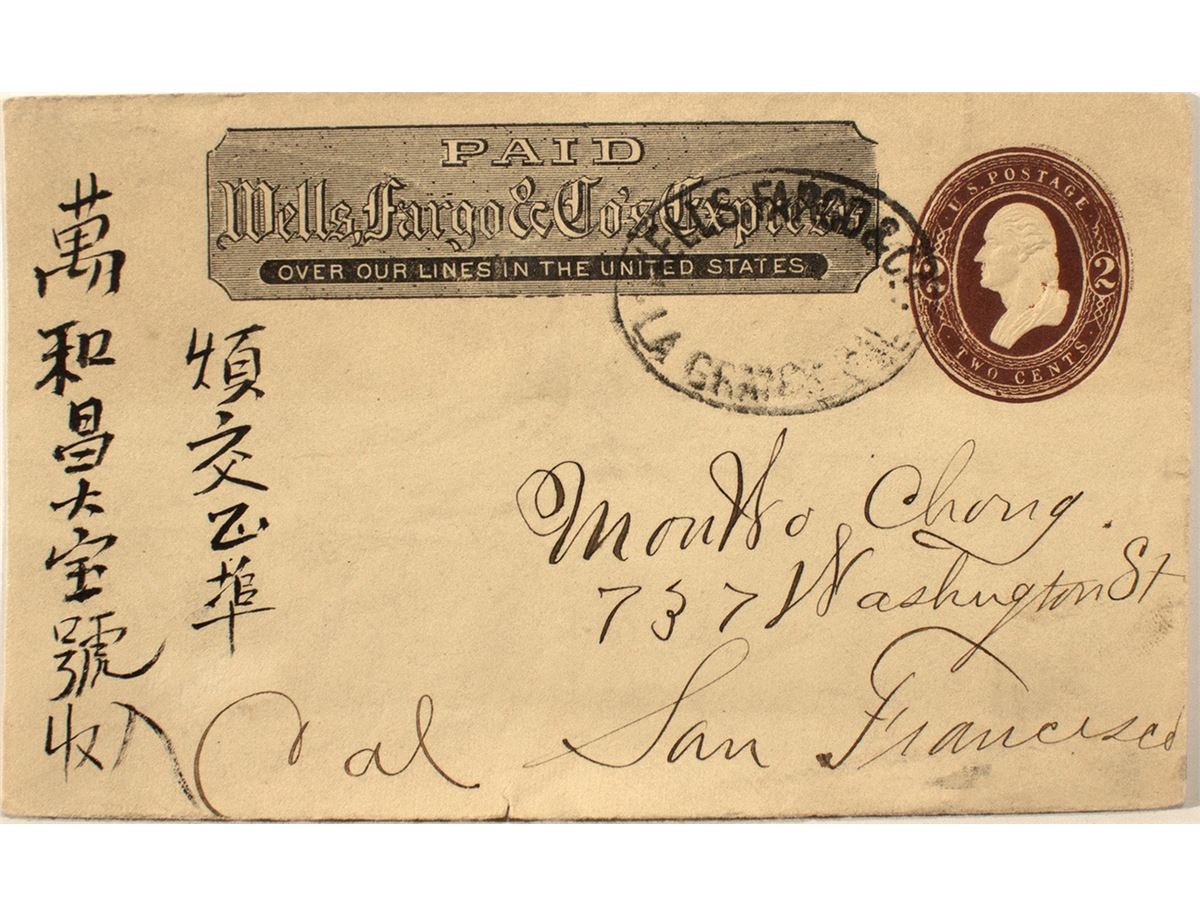 PAID
Wells, Fargo & Co's Express
OVER OUR LINES IN THE UNITED STATES
WELLS FARGO & CO.
LA GRANGE CAL
U.S. POSTAGE
2 2
TWO CENTS
煩交正埠
萬和昌大宝號收入
Mon Wo Chong.
737 Washington St
San Francisco
Cal